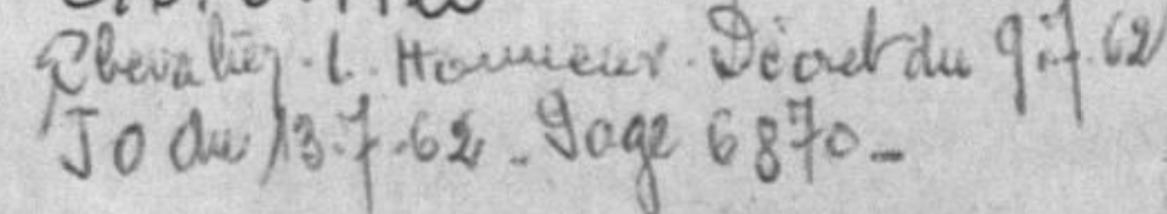 Chevalier. L. Honneur. Décret du 9.7.62
JO du 13.7.62. Page 6870-